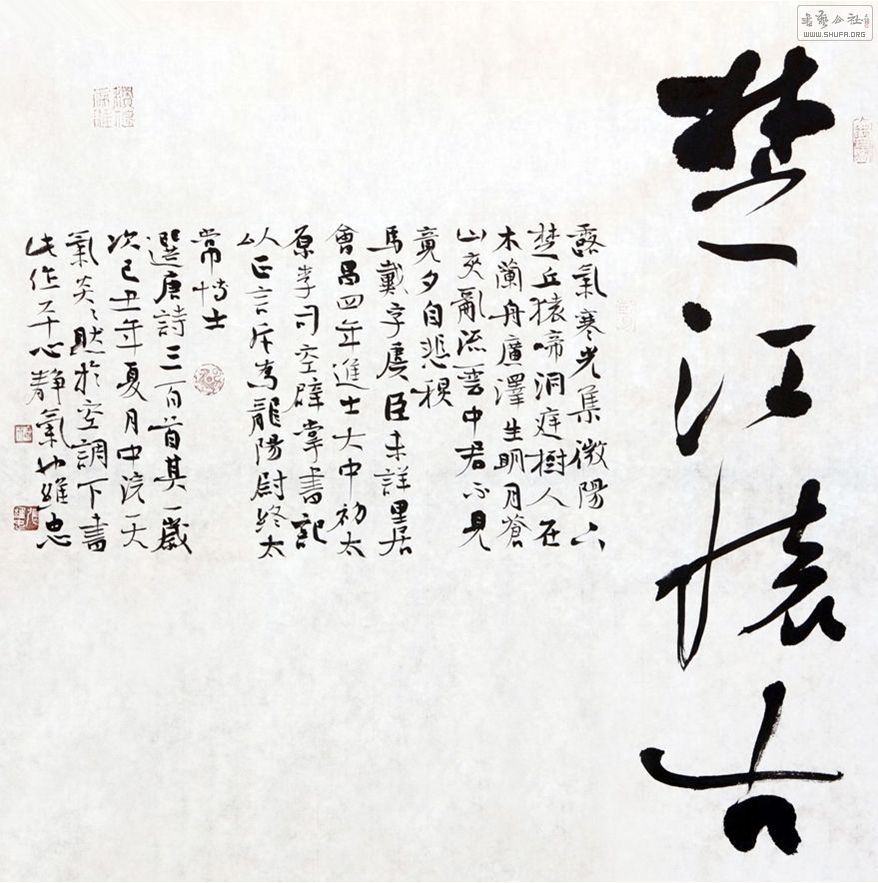 書藝公社
WWW.SHUFA.ORG
楚江懷古
露氣寒光集微陽下
楚丘猿啼洞庭樹人在
木蘭舟廣澤生明月蒼
山夾亂流雲中君不見
竟夕自悲秋
馬戴字虞臣未詳里居
會昌四年進士大中初太
原李司空辟掌書記
以正言斥為龍陽尉終太
常博士
選唐詩三百首其一歲
次己丑年夏月中浣天
氣炎々然於空調下書
此作平心靜氣也維忠